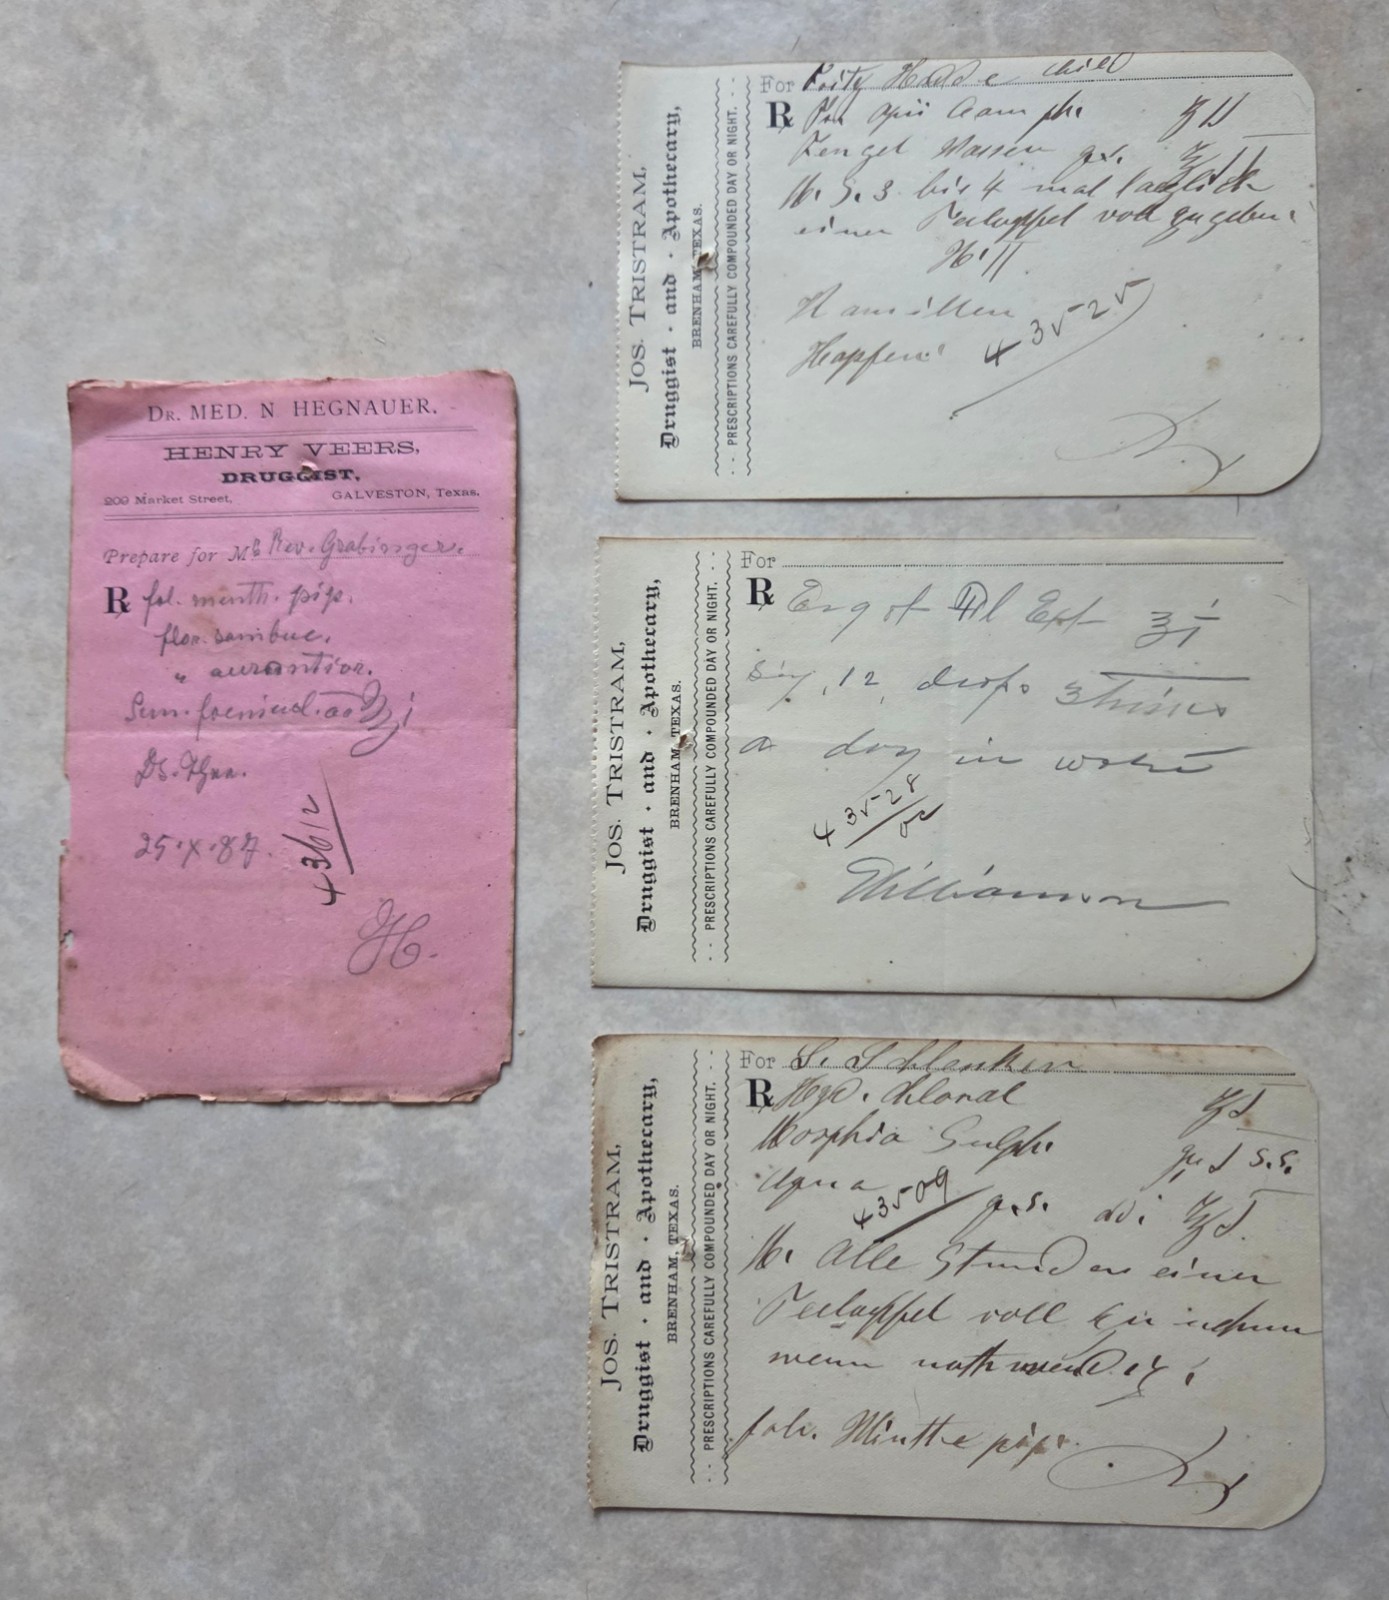 DR. MED. N HEGNAUER.
HENRY VEERS,
DRUGGIST,
209 Market Street, GALVESTON, Texas.
Prepare for Mr Rev. Grabinger.
℞ fol. menth. pip.
flor. sambuc.
" aurantior.
Sem. foenicul. aa ʒi
Ds. Thee.
25.X.87.
43612
H.
JOS. TRISTRAM,
Druggist · and · Apothecary,
BRENHAM, TEXAS.
PRESCRIPTIONS CAREFULLY COMPOUNDED DAY OR NIGHT.
For child
℞ opii camph.
q.s.
M. S. 3 bis 4 mal taeglich
einen Teeloeffel voll zu geben.
Kamillen
Hopfen
43525
JOS. TRISTRAM,
Druggist · and · Apothecary,
BRENHAM, TEXAS.
PRESCRIPTIONS CAREFULLY COMPOUNDED DAY OR NIGHT.
For
℞ Ergot Fl Ext ℥i
Sig. 12 drops 3 times
a day in water
43528
Williamson
JOS. TRISTRAM,
Druggist · and · Apothecary,
BRENHAM, TEXAS.
PRESCRIPTIONS CAREFULLY COMPOUNDED DAY OR NIGHT.
For S. Schlenker
℞ Hyd. Chloral
Morphia Sulph. gr
Aqua q.s. ad
43509
M. Alle Stunden einen
Teeloeffel voll zu nehmen
wenn nothwendig.
fol. Minthe pip.